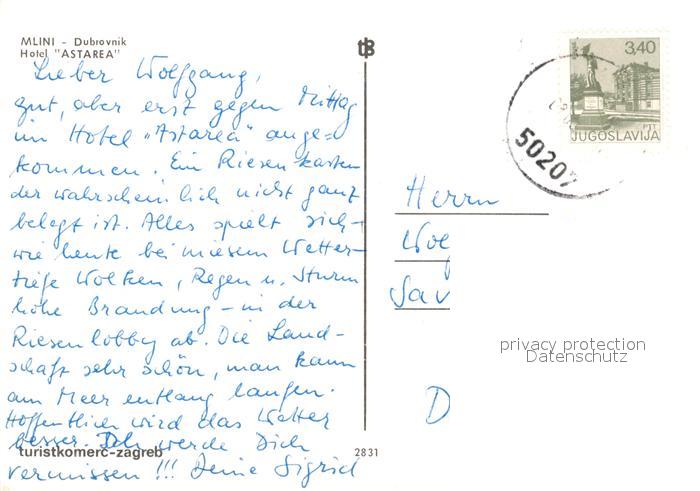 MLINI - Dubrovnik
Hotel "ASTAREA"
Lieber Wolfgang,
gut, aber erst gegen Mittag
im Hotel „Astarea" ange=
kommen. Ein Riesenkasten
der wahrscheinlich nicht ganz
belegt ist. Alles spielt sich -
wie heute bei miesem Wetter -
tiefe Wolken, Regen u. Sturm
hohe Brandung - in der
Riesenlobby ab. Die Land-
schaft sehr schön, man kann
am Meer entlang laufen.
Hoffentlich wird das Wetter
besser. Ich werde Dich
vermissen !!! Deine Sigrid
turistkomerc-zagreb
2831
tB
3,40
JUGOSLAVIJA
50207
Herrn
Wol
Sav
D
privacy protection
Datenschutz